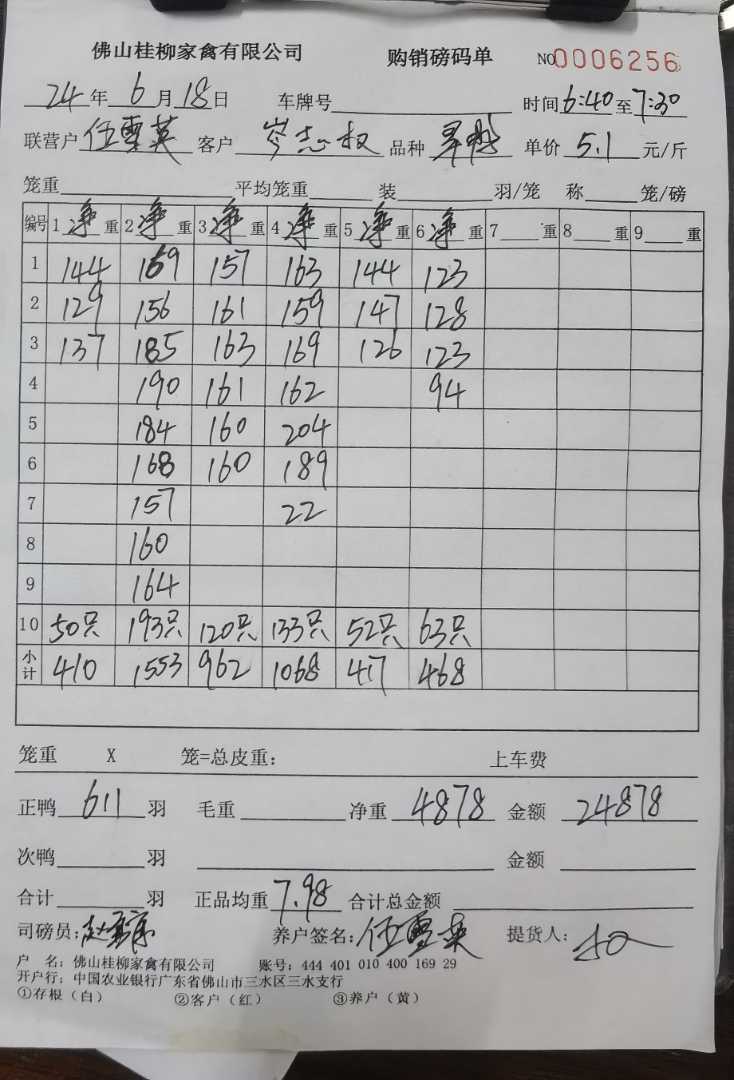 佛山桂柳家禽有限公司 购销磅码单 NO0006256
24年6月18日 车牌号 时间6:40至7:30
联营户 伍雪英 客户 岑志权 品种 单价 5.1 元/斤
笼重 平均笼重 装 羽/笼 称 笼/磅
编号 1净重 2净重 3净重 4净重 5净重 6净重 7 重 8 重 9 重
1 144 169 157 163 144 123
2 129 156 161 159 147 128
3 137 185 163 169 126 123
4 190 161 162 94
5 184 160 204
6 168 160 189
7 157 22
8 160
9 164
10 50只 193只 120只 133只 52只 63只
小计 410 1553 962 1068 417 468
笼重 X 笼=总皮重: 上车费
正鸭 611 羽 毛重 净重 4878 金额 24878
次鸭 羽 金额
合计 羽 正品均重 7.98 合计总金额
司磅员: 养户签名: 伍雪英 提货人:
户 名: 佛山桂柳家禽有限公司 账号: 444 401 010 400 169 29
开户行: 中国农业银行广东省佛山市三水区三水支行
①存根(白) ②客户(红) ③养户(黄)